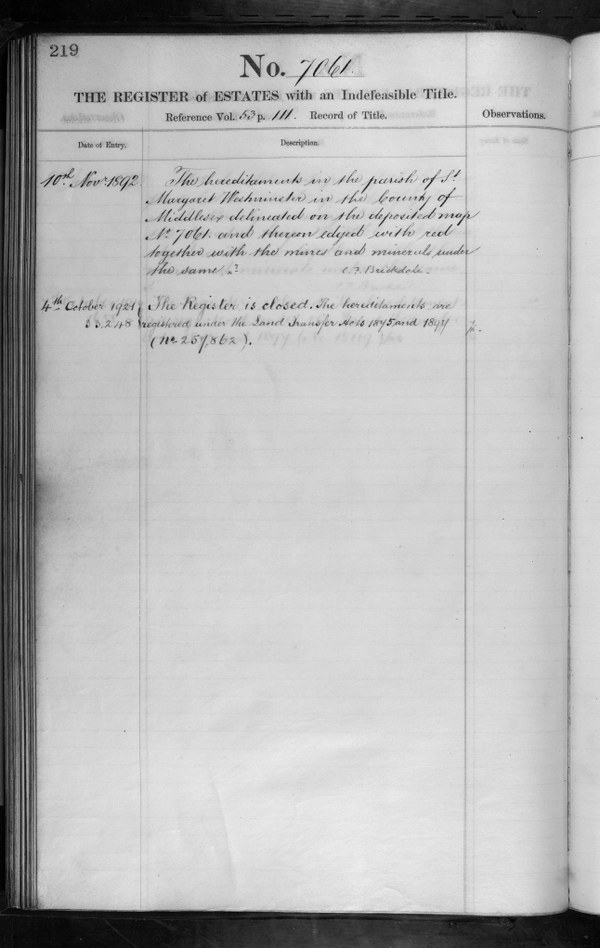 219
No. 7061.
THE REGISTER of ESTATES with an Indefeasible Title.
Reference Vol. 53 p. 111. Record of Title.
Observations.
Date of Entry.
Description.
10th Nov 1892
The hereditaments in the parish of St
Margaret Westminster in the County of
Middlesex delineated on the deposited map
No 7061. and thereon edged with red
together with the mines and minerals under
the same.
C.F. Brickdale.
4th October 1921
The Register is closed. The hereditaments are
registered under the Land Transfer Acts 1875 and 1897
(No 257,862).